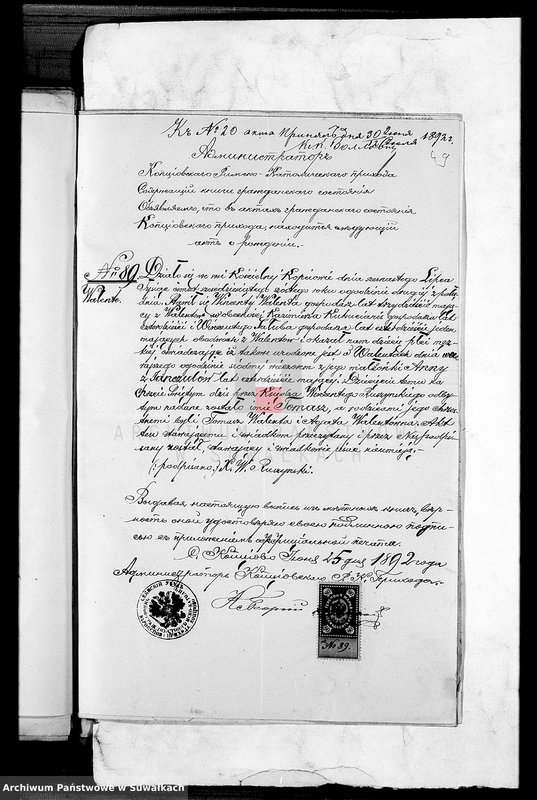 Къ № 20 акта принятъ дня 30 Июня 1892 г.
Администраторъ
Копціовскаго Римско-Католическаго прихода
Содержащій книги гражданскаго состоянія
Объявляетъ, что въ актахъ гражданскаго состоянія
Копціовскаго прихода, находится слѣдующій
актъ о рожденіи.
№ 89.
Walente.
Działo się w wsi Kościelnej Kopciowie dnia Lipca
Tysiąc ośmset szóstego roku o godzinie drugiej z połu-
dnia. Stawił się Wincenty Walenta gospodarz lat trzydzieści mają-
cy z Walentów w obecności Kazimierza gospodarza lat
czterdzieści i Wincentego gospodarza lat czterdzieści jeden
mających obudwóch z Walentów i okazał nam dziecię płci męz-
kiej oświadczając iż takowe urodzone jest w Walentach dnia wczo-
rajszego o godzinie siódmej wieczorem z jego małżonki Anny
z lat czterdzieści mającej. Dziecięciu temu na
Chrzcie Świętym dziś przez Księdza Wincentego Ruszyńskiego odby-
tym nadane zostało imię Tomasz, a rodzicami jego chrze-
stnemi byli Tomasz Walenta i Agata Walentowna. Akt
ten stawającemu i świadkom przeczytany i przez Nas podpi-
sany został, stawający i świadkowie pisać nieumieją.
(podpisano) X. W. Ruszyński.
Выдавая настоящую выпись изъ метычныхъ книгъ, вѣр-
ность оной удостовѣряю своею подписью
съ приложеніемъ оффиціальной печати.
С. Копціово Іюня 25 дня 1892 года
Администраторъ Копціовскаго Р. К. Прихода
№ 89.
Archiwum Państwowe w Suwałkach